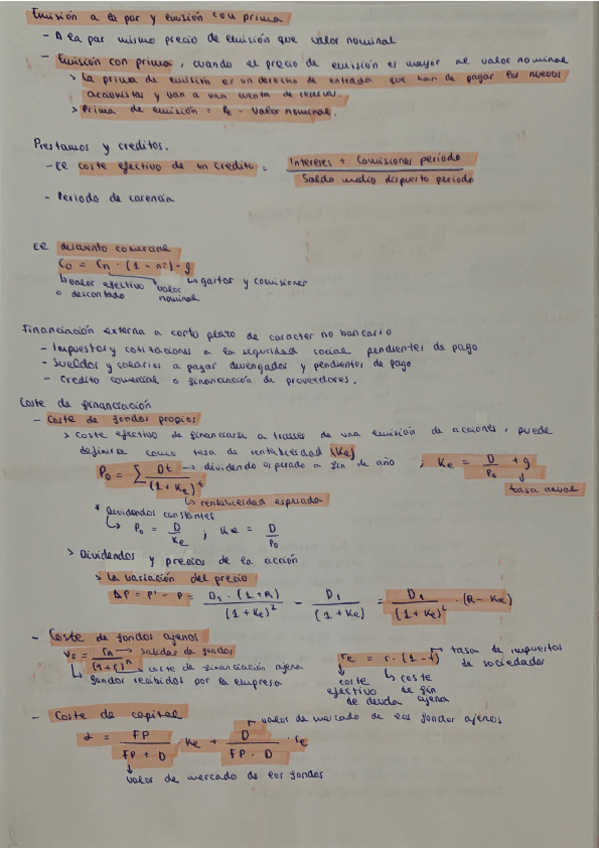 Emisión a la par y emisión con prima
- A la par mismo precio de emisión que valor nominal
- Emisión con prima, cuando el precio de emisión es mayor al valor nominal
> La prima de emisión es un derecho de entrada que han de pagar los nuevos
accionistas y van a una cuenta de reservas.
> Prima de emisión = Pe - Valor nominal.
Prestamos y creditos.
- El coste efectivo de un credito = Intereses + Comisiones periodo
Saldo medio dispuesto periodo
- Periodo de carencia
El descuento comercial
C0 = Cn · (1 - n·i) - g
↳ valor efectivo o descontado valor nominal ↳ gastos y comisiones
Financiación externa a corto plazo de caracter no bancario
- Impuestos y cotizaciones a la seguridad social pendientes de pago
- Sueldos y salarios a pagar devengados y pendientes de pago
- Credito comercial o financiación de proveedores.
Coste de financiación
- Coste de fondos propios
> Coste efectivo de financiarse a traves de una emisión de acciones, puede
definirse como tasa de rentabilidad (Ke)
P0 = Σ Dt / (1 + Ke)^t → dividendo esperado a fin de año ; Ke = D / P0 + g
↳ rentabilidad esperada tasa anual
* Dividendos constantes
↳ P0 = D / Ke ; Ke = D / P0
> Dividendos y precios de la acción
> La variación del precio
ΔP = P' - P = D1 · (1 + R) / (1 + Ke)^2 - D1 / (1 + Ke) = D1 / (1 + Ke)^2 · (R - Ke)
- Coste de fondos ajenos
V0 = rn / (1 + r)^n → salidas de fondos
↳ coste de financiación ajena
↳ fondos recibidos por la empresa
re = r · (1 - t) → tasa de impuestos de sociedades
↳ coste efectivo de la deuda ↳ coste de fin ajena
- Coste de capital → valor de mercado de los fondos ajenos
α = FP / FP + D · Ke + D / FP · D · re
↳ valor de mercado de los fondos